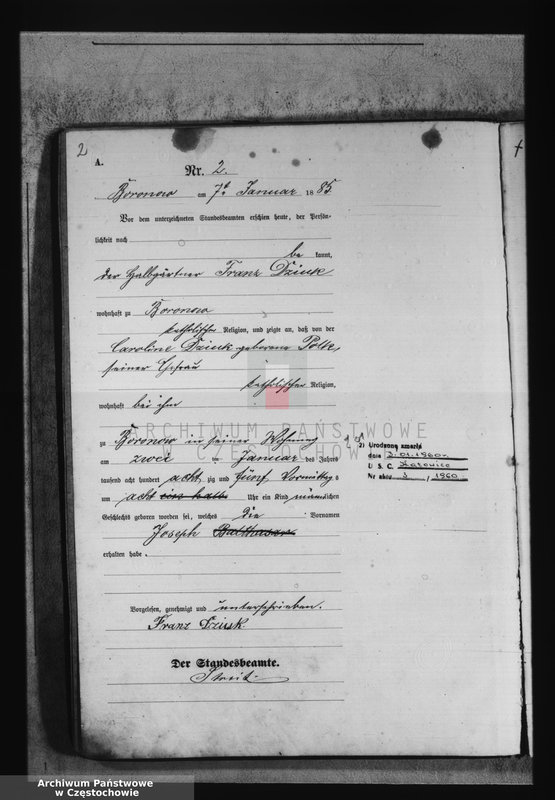 2
A.
Nr. 2.
Boronow am 7t Januar 1885.
Vor dem unterzeichneten Standesbeamten erschien heute, der Persön-
lichkeit nach
be kannt,
der Halbgärtner Franz Dziuk
wohnhaft zu Boronow
katholischer Religion, und zeigte an, daß von der
Caroline Dziuk geborene Polk,
seiner Ehefrau
katholischer Religion,
wohnhaft bei ihm
ARCHIWUM PAŃSTWOWE
zu Boronow in seiner Wohnung
am zwei ten Januar des Jahres
tausend acht hundert achtzig und fünf Vormittags
um acht ein halb Uhr ein Kind männlichen
Geschlechts geboren worden sei, welches die Vornamen
Joseph Balthasar
erhalten habe.
Vorgelesen, genehmigt und unterschrieben.
Franz Dziuk
Der Standesbeamte.
2) Urodzone zmarło
dnia 3.01.1960 r.
U S C. Katowice
Nr aktu 3 / 1960
Archiwum Państwowe
w Częstochowie